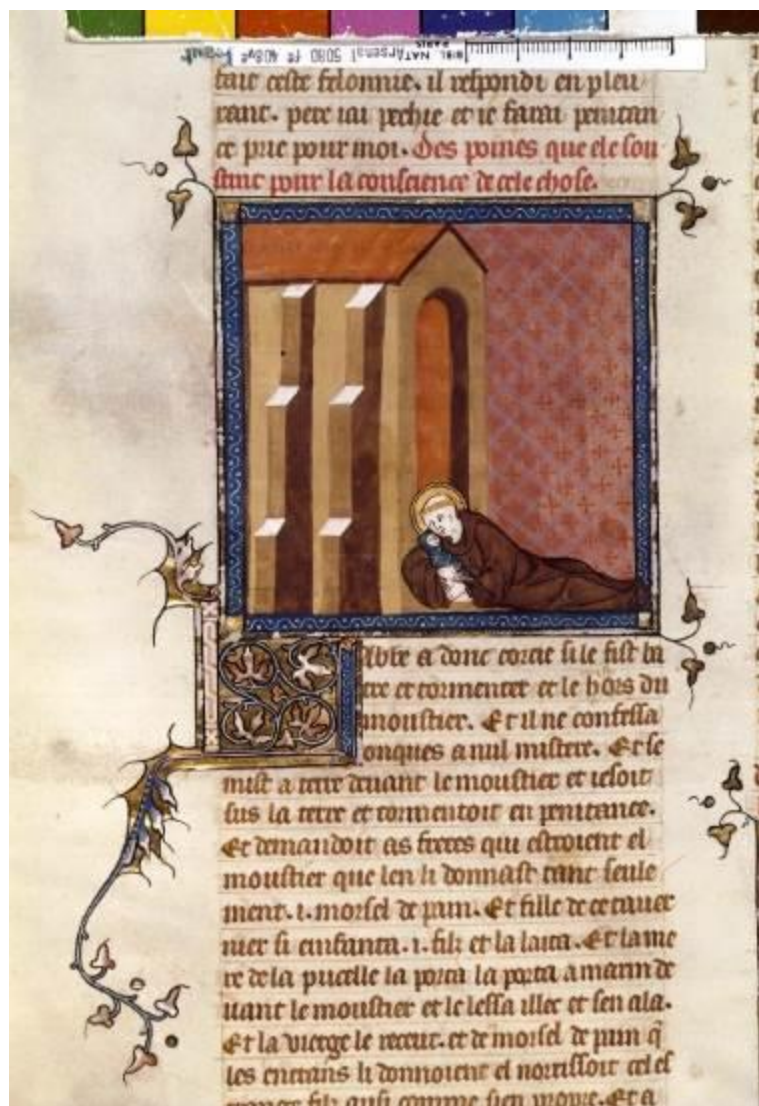 BIBL. NAT. Arsenal 5080 fº 408vº
PARIS
fait ceste felonnie. il respondi en pleu
rant. pere iai pechie et ie farai penitan
ce prie pour moi. Des poines que ele sou
stint pour la conscience de cele chose.
Abbe a donc corcie si le fist ba
tre et tormenter et le bors du
moustier. Et il ne confessa
onques a nul mistere. Et se
mist a terre deuant le moustier et iesoit
sus la terre et tormentoit en penitance.
Et demandoit as freres qui estroient el
moustier que len li donnast tant seule
ment .i. morsel de pain. Et fille de ce tauer
nier si enfanta .i. filz et la laita. Et la me
re de la pucelle la porta la porta a matin de
uant le moustier et le lessa illec et sen ala.
Et la vierge le recut. et de morsel de pain q
les entrans li donnoient el norrissoit cel es
filz ausi comme sien propre. Et a